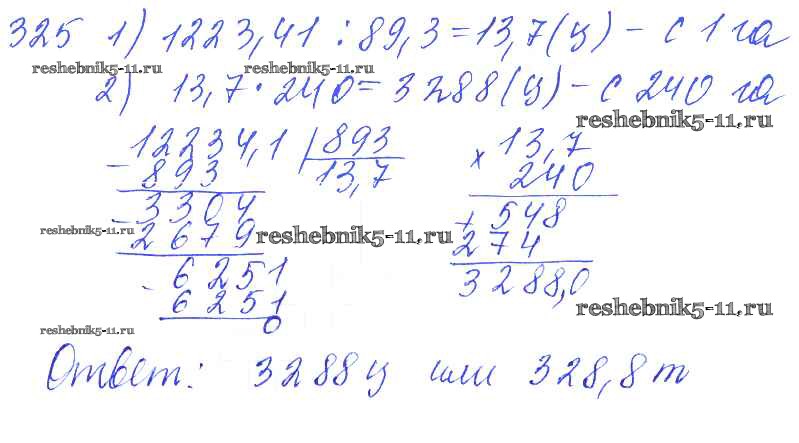 325 1) 1223,41 : 89,3 = 13,7 (ц) - с 1 га
reshebnik5-11.ru reshebnik5-11.ru
2) 13,7 · 240 = 3288 (ц) - с 240 га
reshebnik5-11.ru
12234,1 | 893
- 893 13,7
- 3304
2679
- 6251
6251
0
× 13,7
240
+ 548
274
3288,0
reshebnik5-11.ru reshebnik5-11.ru
reshebnik5-11.ru
reshebnik5-11.ru
Ответ: 3288 ц или 328,8 т